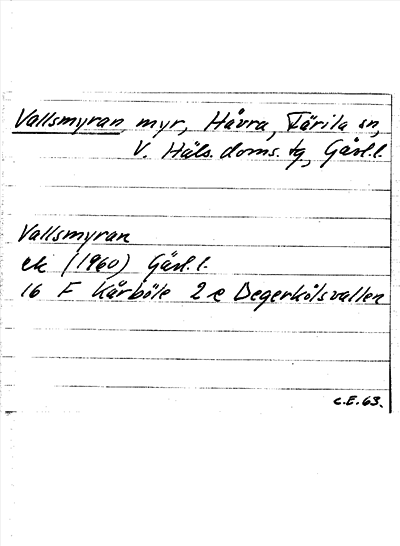 Vallsmyran, myr, Håvra, Färila sn,
V. Häls. doms. tg, Gävl. l.
Vallsmyran
ek (1960) Gävl. l.
16 F Kårböle 2 e Degerkölsvallen
C.E. 63.